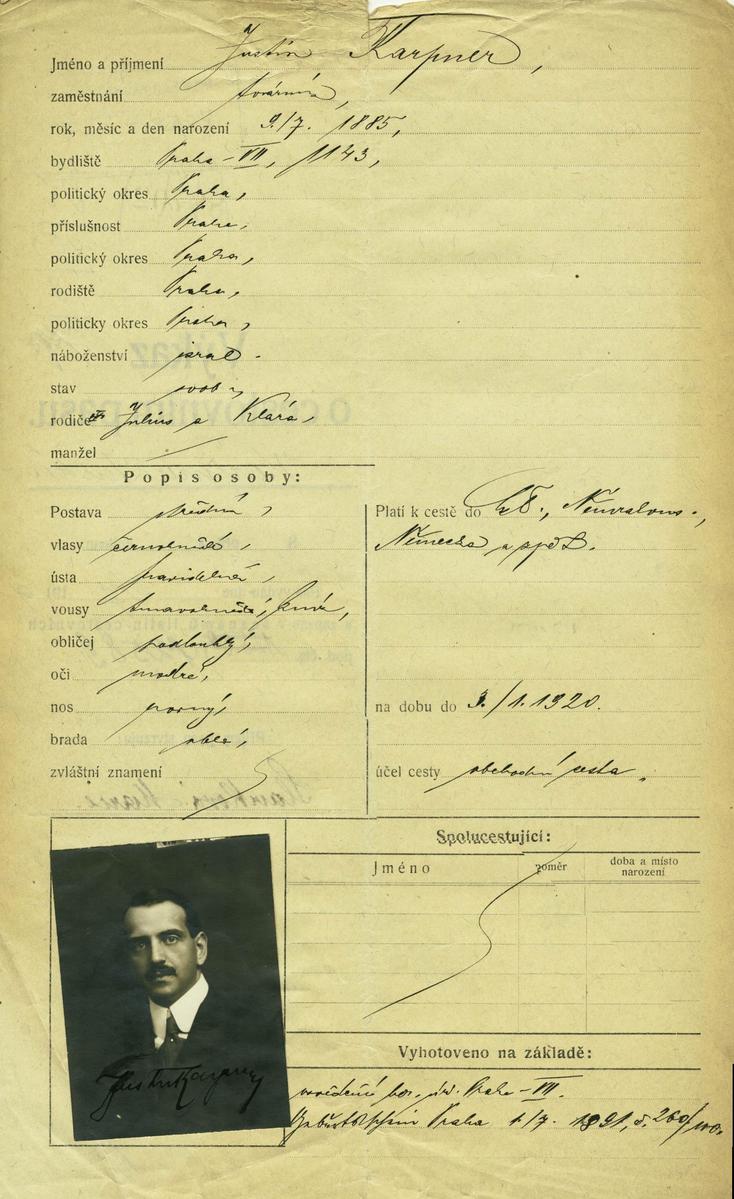 Jméno a příjmení Justin Karpner,
zaměstnání továrník,
rok, měsíc a den narození 9./7. 1885,
bydliště Praha-VII, 1143,
politický okres Praha,
příslušnost Praha,
politický okres Praha,
rodiště Praha,
politicky okres Praha,
náboženství israel.
stav svob.,
rodiče Julius a Klára,
manžel
Popis osoby:
Postava střední,
vlasy černohnědé,
ústa pravidelná,
vousy tmavohnědé, knír,
obličej podlouhlý,
oči modré,
nos rovný,
brada oblá,
zvláštní znamení
Platí k cestě do
Německa a zpět.
na dobu do 3./1.1920.
účel cesty obchodní cesta.
Spolucestující:
Jméno poměr doba a místo narození
Vyhotoveno na základě:
Praha-VII.
Praha 1./7. 1891, č. 260/
Justin Karpner